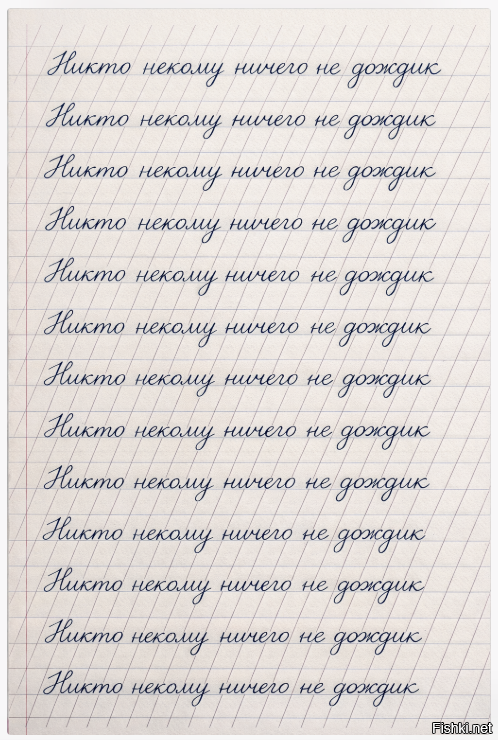 Никто некому ничего не дождик
Никто некому ничего не дождик
Никто некому ничего не дождик
Никто некому ничего не дождик
Никто некому ничего не дождик
Никто некому ничего не дождик
Никто некому ничего не дождик
Никто некому ничего не дождик
Никто некому ничего не дождик
Никто некому ничего не дождик
Никто некому ничего не дождик
Никто некому ничего не дождик
Никто некому ничего не дождик
Fishki.net